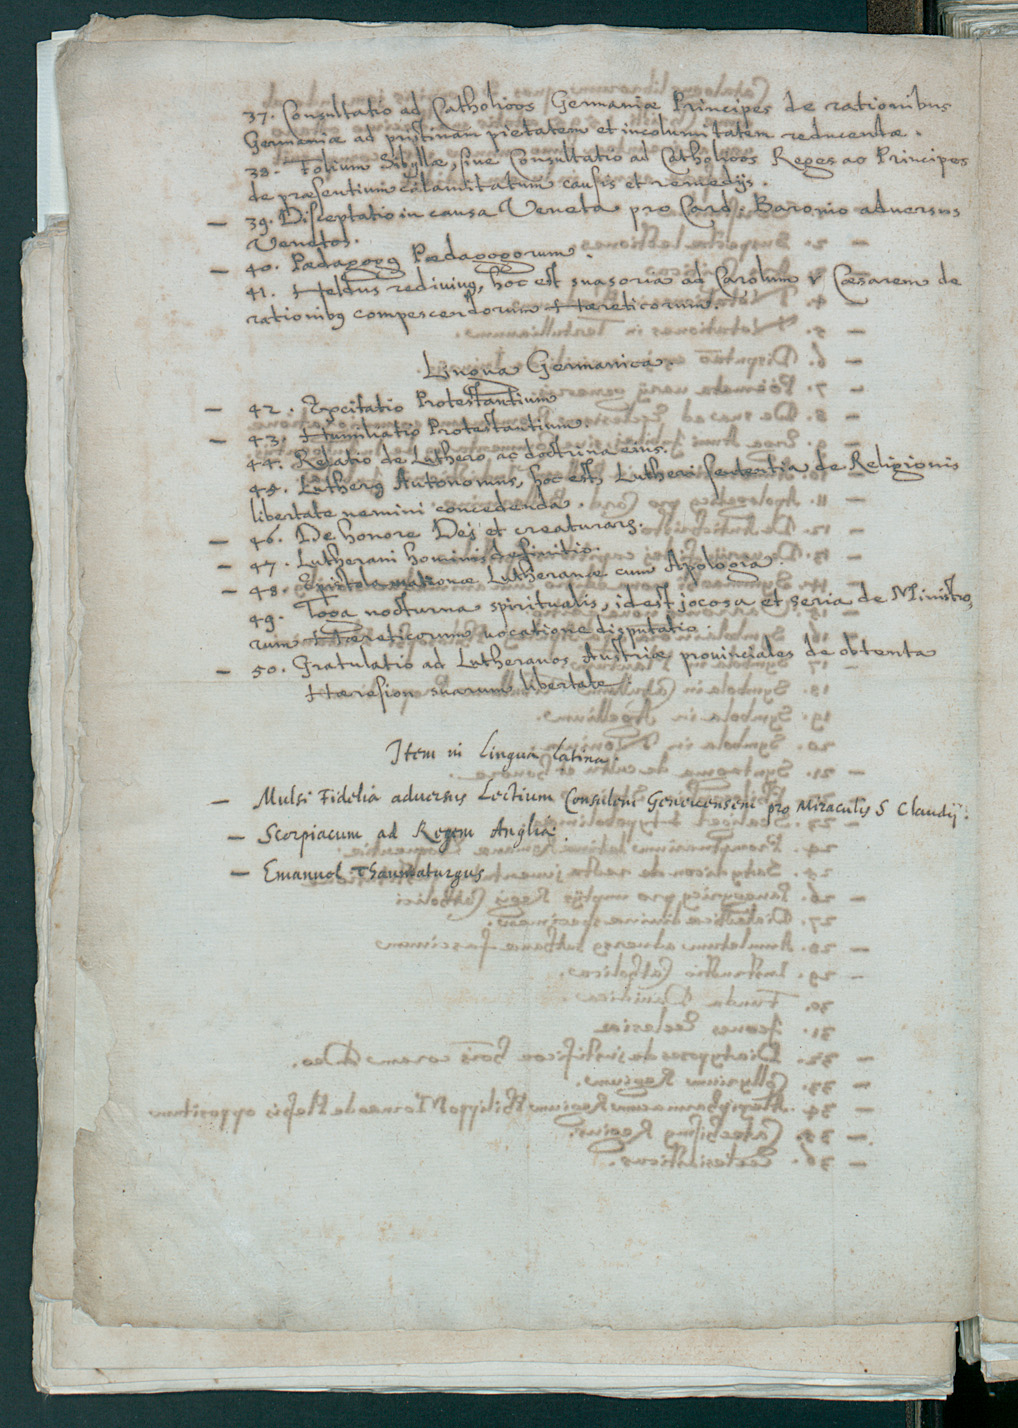 37. Consultatio ad Catholicos Germaniæ Principes de rationibus
Germaniæ ad pristinam pietatem et incolumitatem reducendæ.
38. Folium Sibyllæ, sive Consultatio ad Catholicos Reges ac Principes
de præsentium calamitatum causis et remedijs.
— 39. Disceptatio in causa Veneta pro Card. Baronio adversus
Venetos.
— 40. Pædagogg Pædagogorum.
41. Heldus redivivg, hoc est suasoria ad Carolum V Cæsarem de
rationibg compescendorum Hæreticorum.
Lingua Germanica.
— 42. Excitatio Protestantium
— 43. Humiliatio Protestantium.
44. Relatio de Luthero, ac doctrina eius.
45. Lutherg Autonomus, hoc est, Lutheri sententia de Religionis
libertate nemini concedenda.
— 46. De honore Dei et creaturarum.
— 47. Lutherani hominis definitio.
— 48. Epistola matronæ Lutheranæ cum Apologia.
49. Toga nocturna spiritualis, id est jocosa et seria de Ministro,
rum Hæreticorum vocatione disputatio.
— 50. Gratulatio ad Lutheranos Austriæ provinciales de obtenta
Hæresion suarum libertate.
Item in lingua latina.
— Mulsi Fidelia adversus Lectium Consulem Genevensem pro Miraculis S Claudij.
— Scorpiacum ad Regem Angliæ.
— Emanuel Thaumaturgus